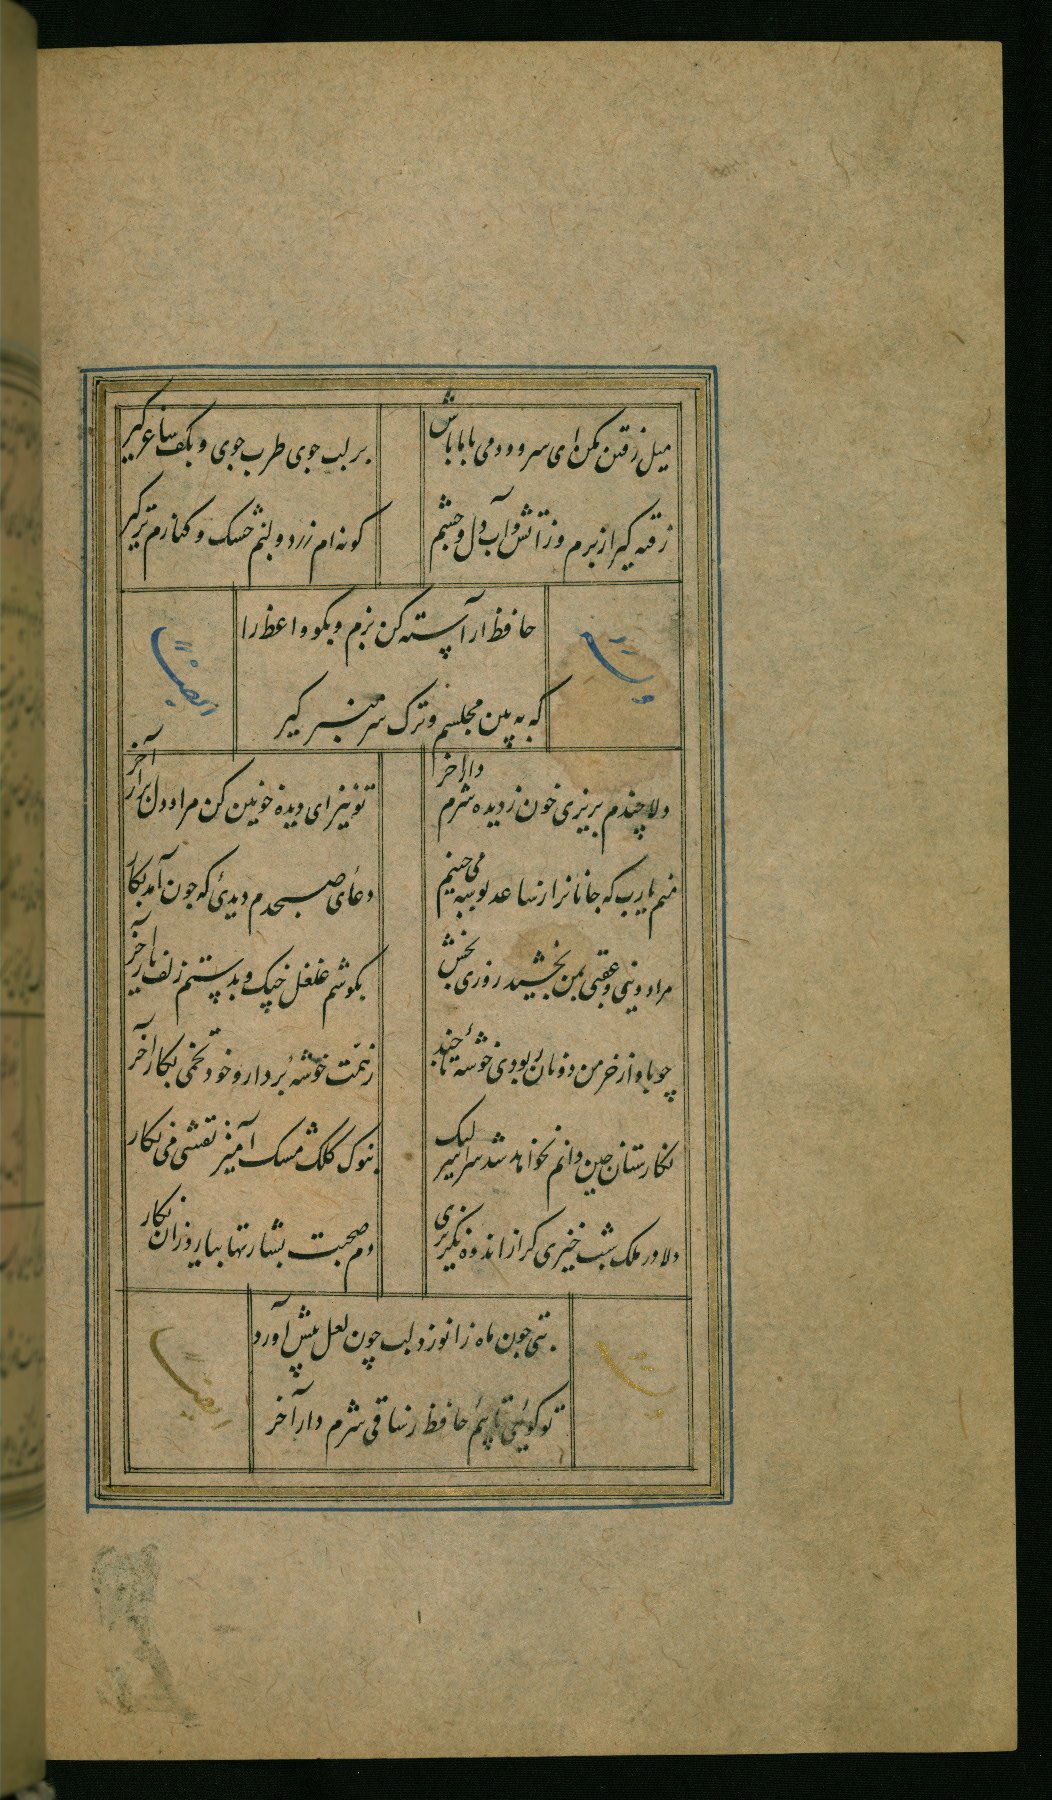 میل رفتن مکن ای سرو و دمی با ما باش
بر لب جوی طرب جوی و بکف ساغر گیر
رفته گیر از برم وز آتش و آب دل و چشم
گونه ام زرد و لبم خشک و کنارم تر گیر
حافظ آراسته کن بزم و بگو واعظ را
که به بین مجلسم و ترک سر منبر گیر
وله ایضاً
دلا چندم بریزی خون ز دیده شرم دار آخر
تو نیز ای دیده خوابین کن مراد دل برآر آخر
منم یارب که جانانرا ز ساعد بوسه می چینم
دعای صبحدم دیدی که چون آمد بکار
مراد دنیی و عقبی بمن بخشید روزی بخش
بگوشم غلغل چنگ و بدستم زلف یار آخر
چو باد از خرمن دونان ربودی خوشه تا چند
ز همت خوشه بردار و خود تخمی بکار آخر
نگارستان چین دانم نخواهد شد سرایت لیک
بنوک کلک مشک آمیز نقشی می نگار
دلا در ملک شب خیزی گر از اندوه نگریزی
دم صحبت بشارتها بیارد زان نگار
بتی چون ماه زانو زد لب چون لعل پیش آورد
تو گوئی تائبم حافظ ز ساقی شرم دار آخر
وله ایضاً